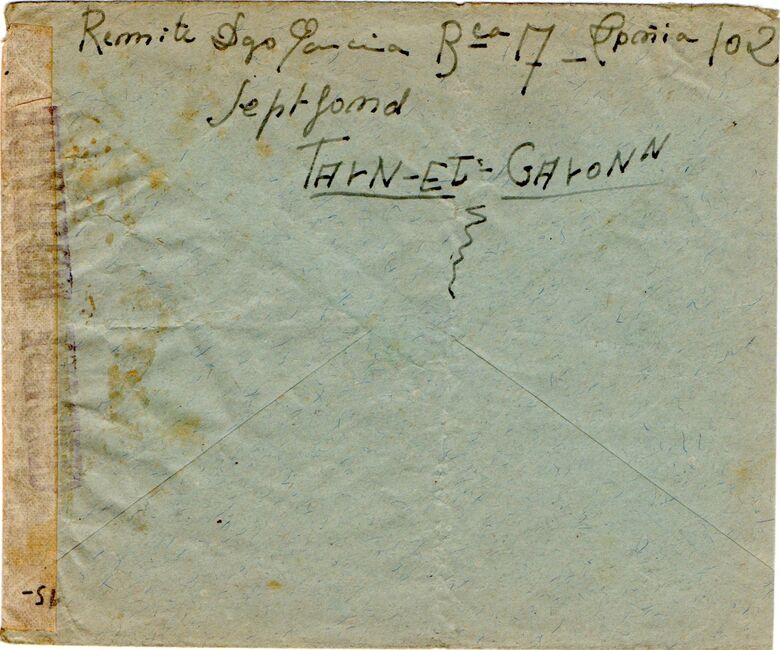 Remite Dgo Garcia Bca 17 - Cpañia 102
Septfond
TARN-ET-GARONN
15-